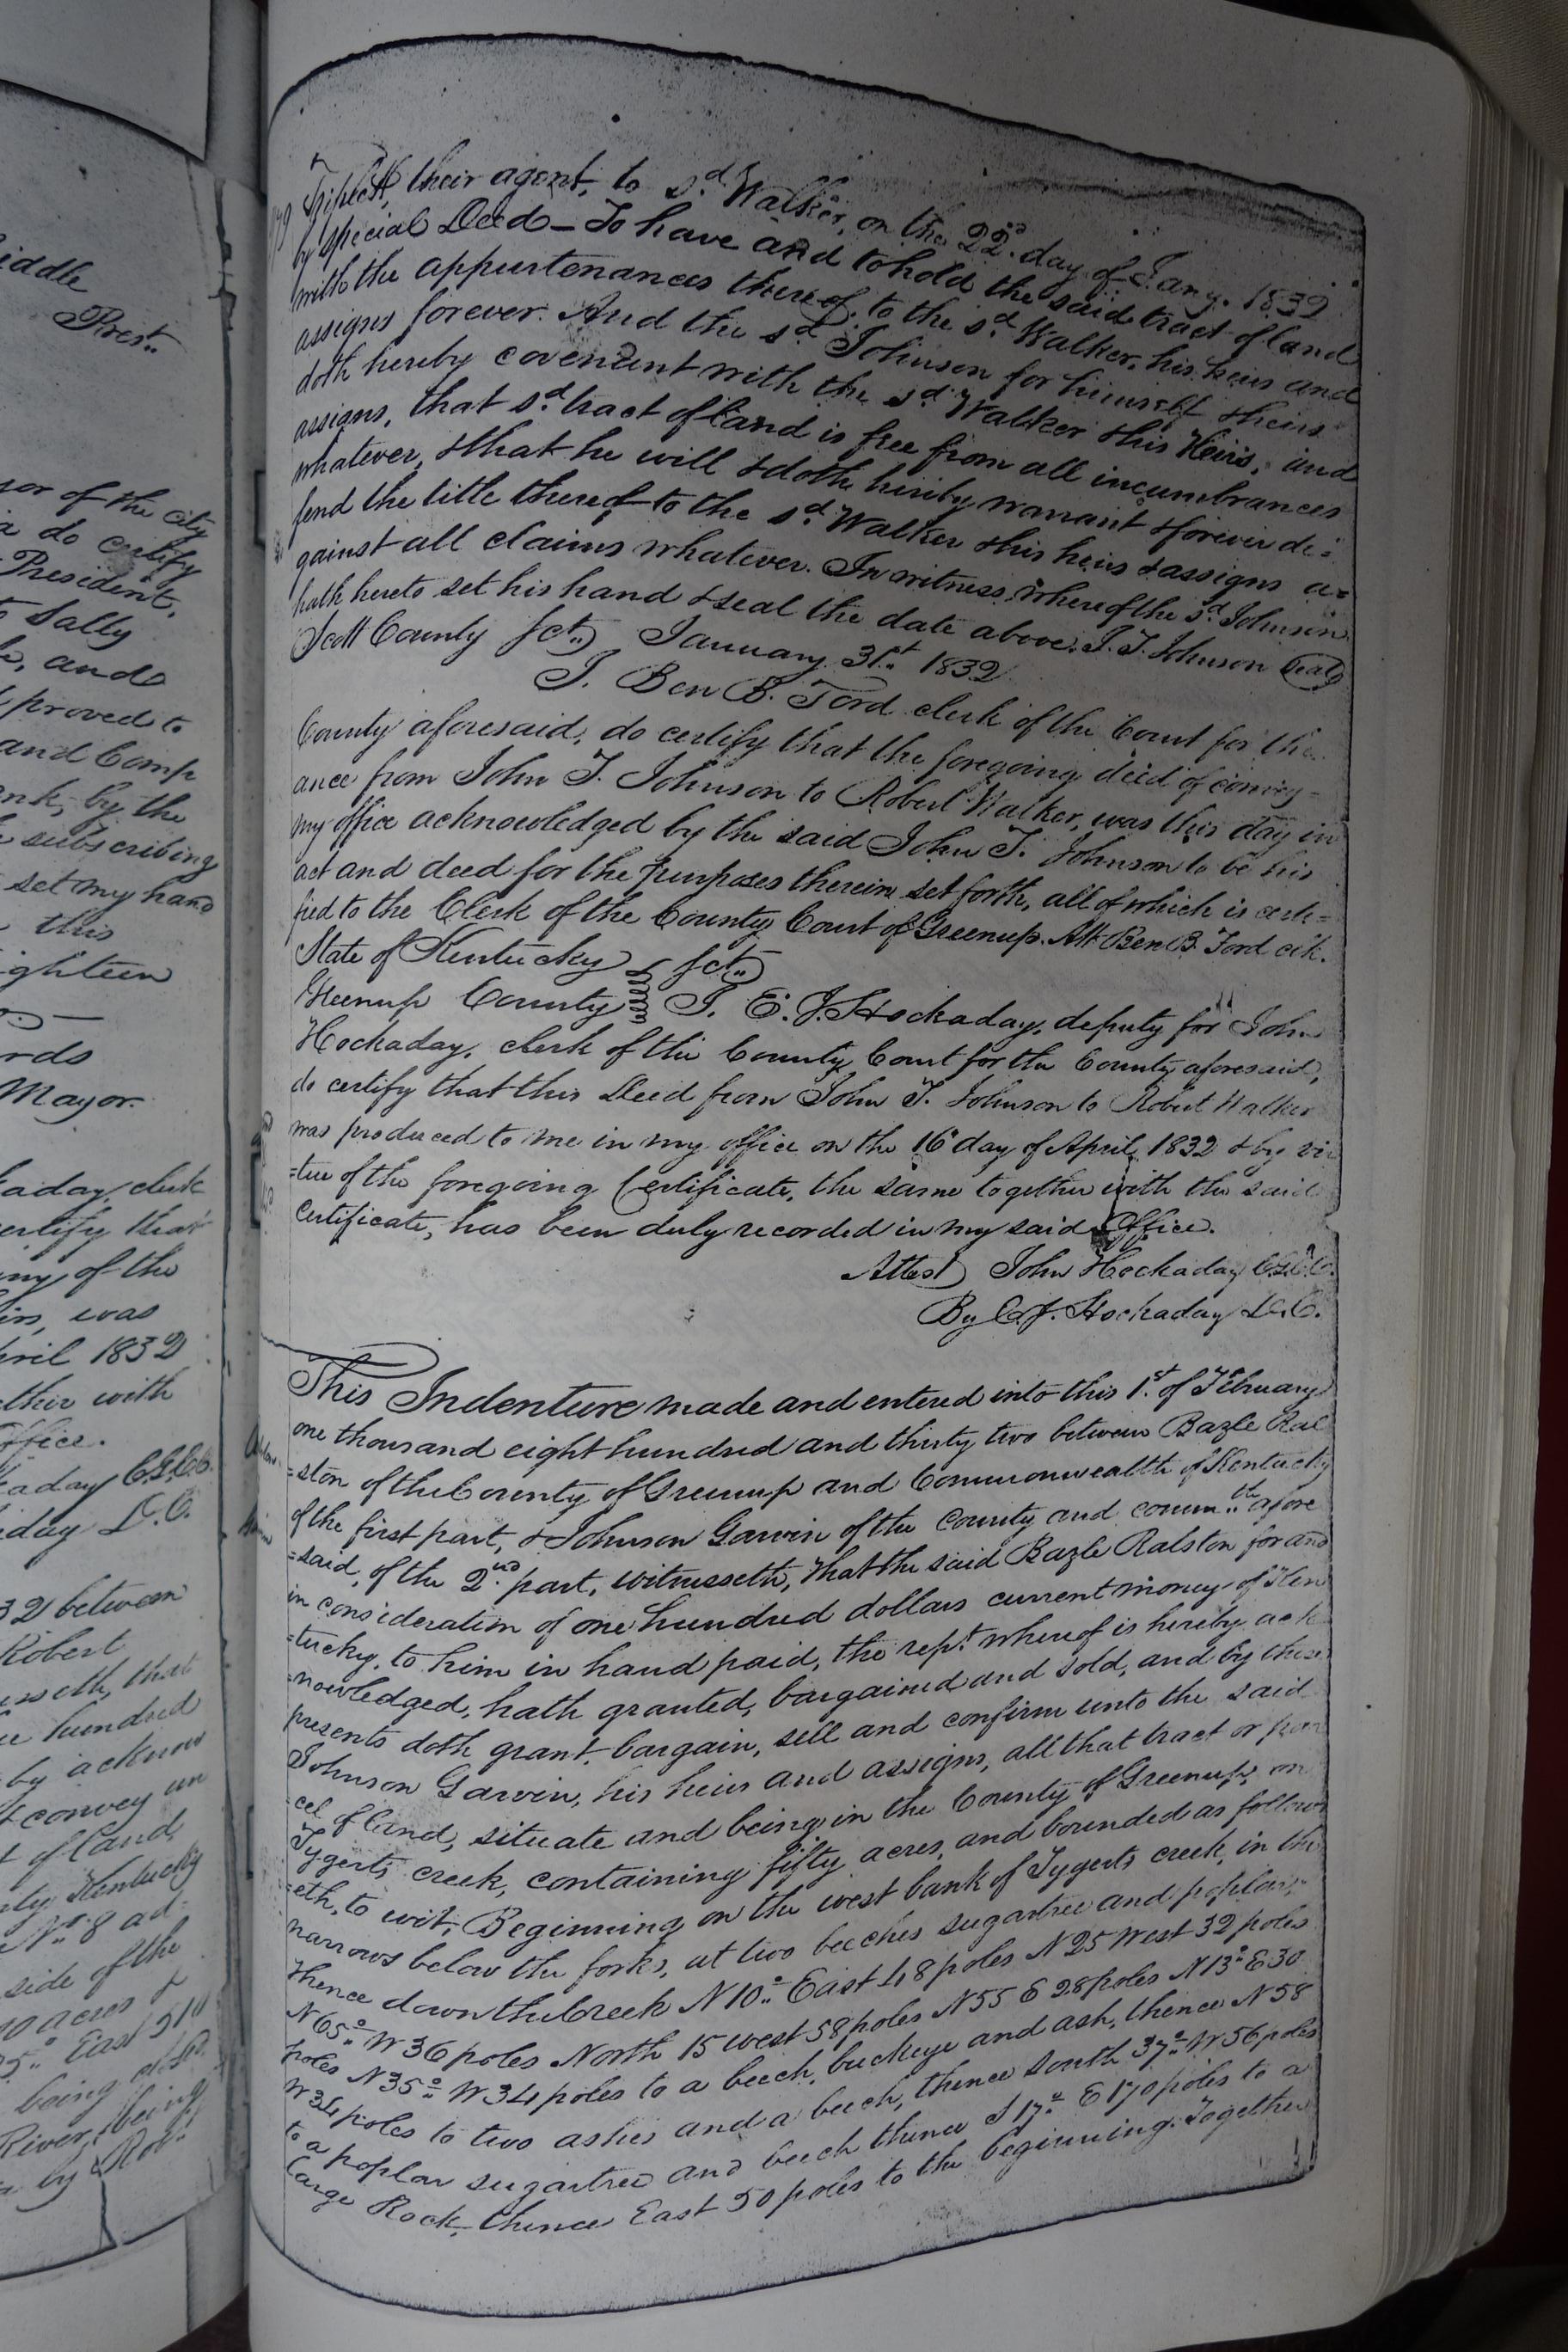 iddle
Prest.
sor of the city
a do certify
President,
to Sally
and
proved to
and Comp
ank, by the
subscribing
set my hand
this
ighteen
rds
Mayor.
aday, clerk
ertify that
ing of the
was
pril 1832
ether with
office.
aday C.G.C.C.
day D.C.
32 between
Robert
esseth, that
hundred
by acknow
convey un
t of land,
nty Kentucky
No. 8 ad-
side of the
acres &
5.° East 511
being
River, being
by Rob.
Triplett, their agent, to sd. Walker, on the 22d. day of Jany. 1832
by special Deed – To have and to hold the said tract of land
with the appurtenances thereof, to the sd. Walker, his heirs and
assigns forever. And the sd. Johnson for himself & heirs
doth hereby covenant with the sd. Walker & his Heirs, and
assigns, that sd. tract of land is free from all incumbrances
whatever, & that he will & doth hereby warrant & forever de=
fend the title thereof to the sd. Walker & his heirs & assigns a=
gainst all claims whatever. In witness whereof the sd. Johnson
hath hereto set his hand & seal the date above. J. T. Johnson Seal
Scott County Sct. January 31st. 1832
I. Ben B. Ford clerk of the Court for the
County aforesaid, do certify that the foregoing deed of convey=
ance from John T. Johnson to Robert Walker, was this day in
my office acknowledged by the said John T. Johnson to be his
act and deed for the purposes therein set forth, all of which is certi=
fied to the Clerk of the County Court of Greenup. Att. Ben B. Ford clk.
State of Kentucky Sct.
Greenup County I. E. J. Hockaday, deputy for John
Hockaday, clerk of the County Court for the County aforesaid,
do certify that this Deed from John T. Johnson to Robert Walker
was produced to me in my office on the 16 day of April 1832 & by vir
=tue of the foregoing Certificate, the same together with the said
Certificate, has been duly recorded in my said Office.
Attest John Hockaday C.G.C.C.
By E. J. Hockaday D.C.
This Indenture made and entered into this 1st. of February
one thousand eight hundred and thirty two between Bazle Ral
=ston of the County of Greenup and Commonwealth of Kentucky
of the first part, & Johnson Garvin of the County and comm.th afore
=said, of the 2nd. part, witnesseth, that the said Bazle Ralston for and
in consideration of one hundred dollars current money of Ken
=tucky, to him in hand paid, the rept. whereof is hereby ack
=nowledged, hath granted, bargained and sold, and by these
presents doth grant, bargain, sell and confirm unto the said
Johnson Garvin, his heirs and assigns, all that tract or par
=cel of land, situate and being in the County of Greenup, on
Tygerts creek, containing fifty acres, and bounded as follow
=eth, to wit; Beginning on the west bank of Tygerts creek, in the
narrows below the forks, at two beeches sugartree and poplar,
thence down the Creek N 10.° East 48 poles N 25 West 32 poles
N 65.° W 36 poles North 15 west 58 poles N 55 E 28 poles N 13.° E 30
poles N 35.° W 34 poles to a beech, buckeye and ash, thence N 58
W 34 poles to two ashes and a beech, thence South 37.° W 56 poles
to a poplar sugartree and beech thence S 17.° E 170 poles to a
large Rock, thence East 50 poles to the beginning. Together